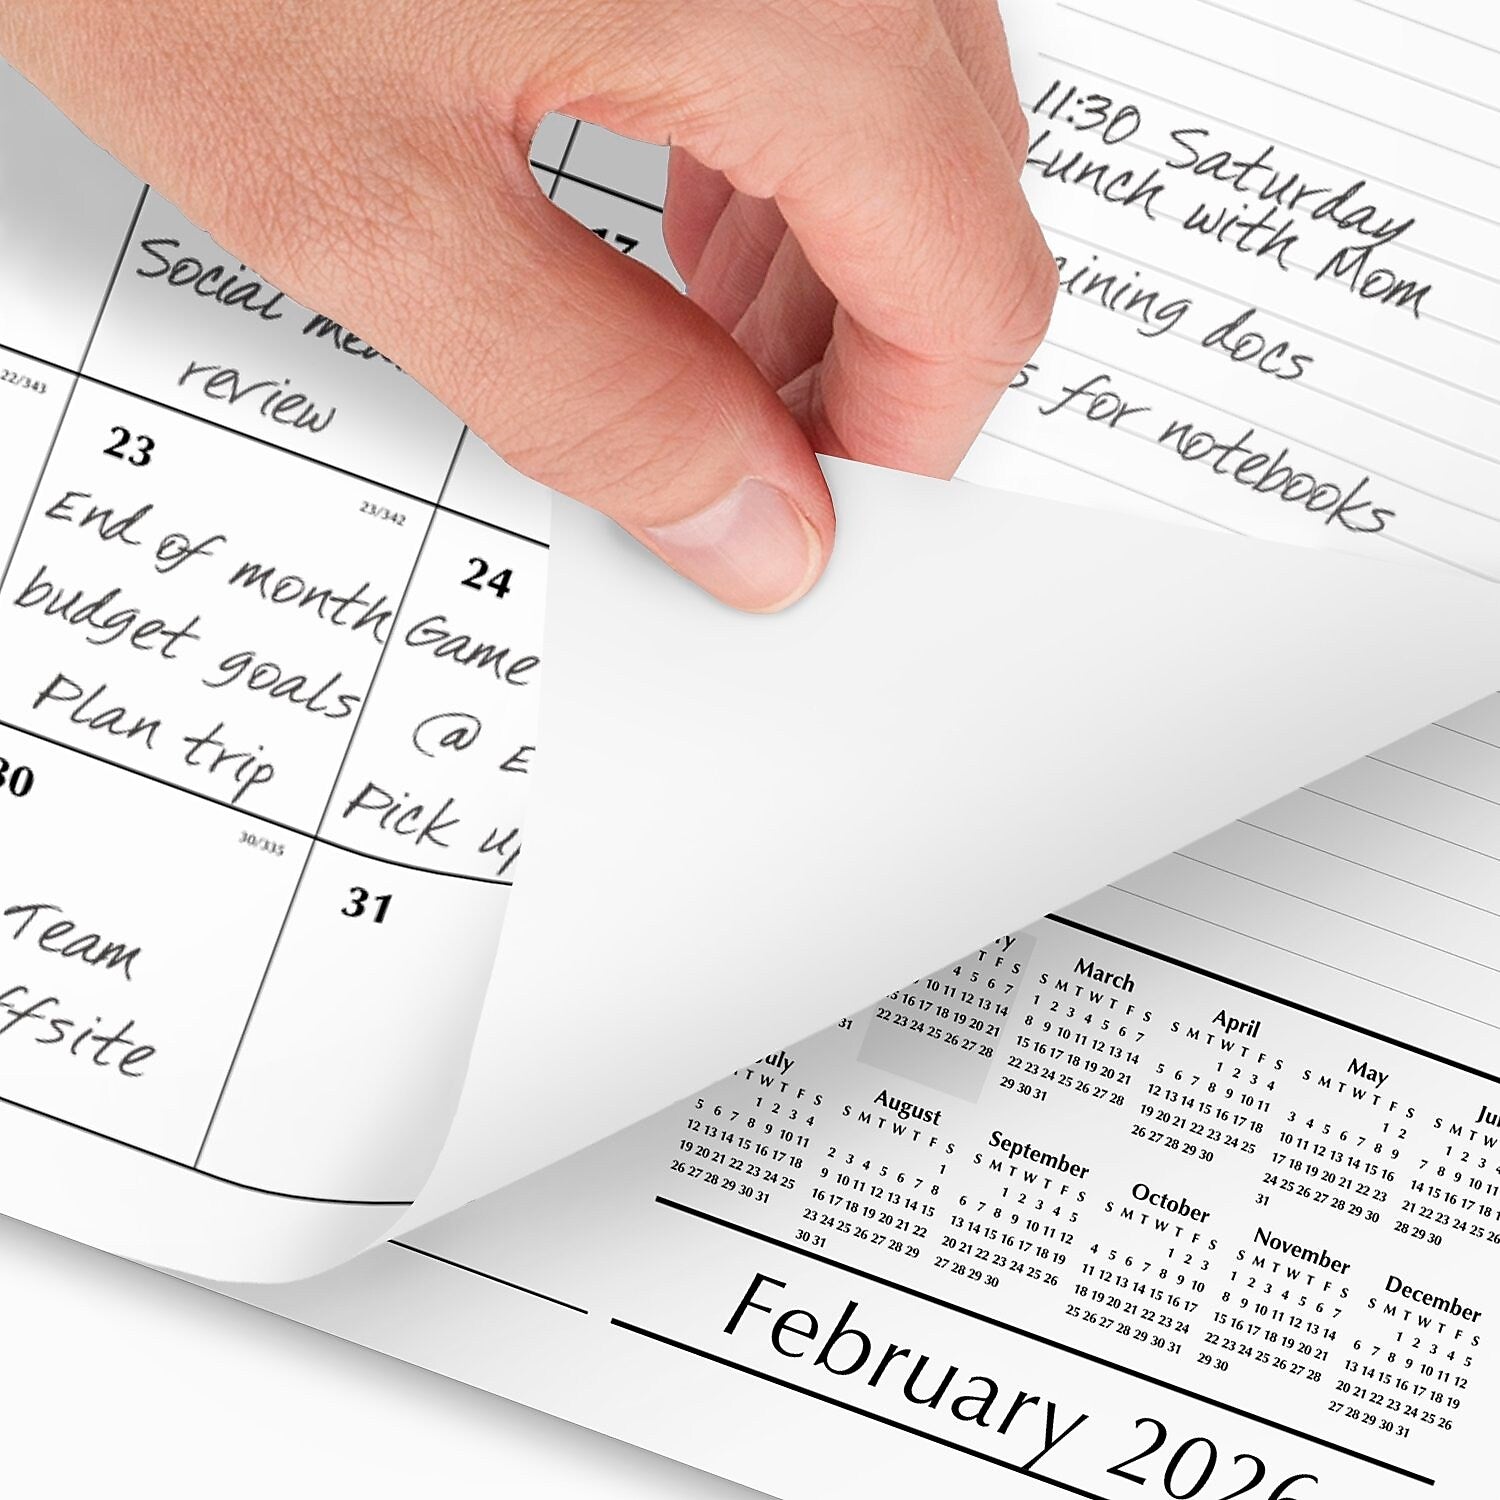 11:30 Saturday
Lunch with Mom
docs
for notebooks
17
Social
review
22/343
23
23/342
End of month
budget goals
Plan trip
24
Game
@
Pick up
30
30/335
Team
31
March
S M T W T F S
1 2 3 4 5 6 7
8 9 10 11 12 13 14
15 16 17 18 19 20 21
22 23 24 25 26 27 28
29 30 31
April
S M T W T F S
1 2 3 4
5 6 7 8 9 10 11
12 13 14 15 16 17 18
19 20 21 22 23 24 25
26 27 28 29 30
May
S M T W T F S
1 2
3 4 5 6 7 8 9
10 11 12 13 14 15 16
17 18 19 20 21 22 23
24 25 26 27 28 29 30
31
S M T W
1 2 3
7 8 9 10 11
14 15 16 17 18
21 22 23 24 25
28 29 30
T F S
4 5 6 7
10 11 12 13 14
16 17 18 19 20 21
22 23 24 25 26 27 28
31
July
T W T F S
1 2 3 4
5 6 7 8 9 10 11
12 13 14 15 16 17 18
19 20 21 22 23 24 25
26 27 28 29 30 31
August
S M T W T F S
1
2 3 4 5 6 7 8
9 10 11 12 13 14 15
16 17 18 19 20 21 22
23 24 25 26 27 28 29
30 31
September
S M T W T F S
1 2 3 4 5
6 7 8 9 10 11 12
13 14 15 16 17 18 19
20 21 22 23 24 25 26
27 28 29 30
October
S M T W T F S
1 2 3
4 5 6 7 8 9 10
11 12 13 14 15 16 17
18 19 20 21 22 23 24
25 26 27 28 29 30 31
November
S M T W T F S
1 2 3 4 5 6 7
8 9 10 11 12 13 14
15 16 17 18 19 20 21
22 23 24 25 26 27 28
29 30
December
S M T W T F S
1 2 3 4 5
6 7 8 9 10 11 12
13 14 15 16 17 18 19
20 21 22 23 24 25 26
27 28 29 30 31
February 2026